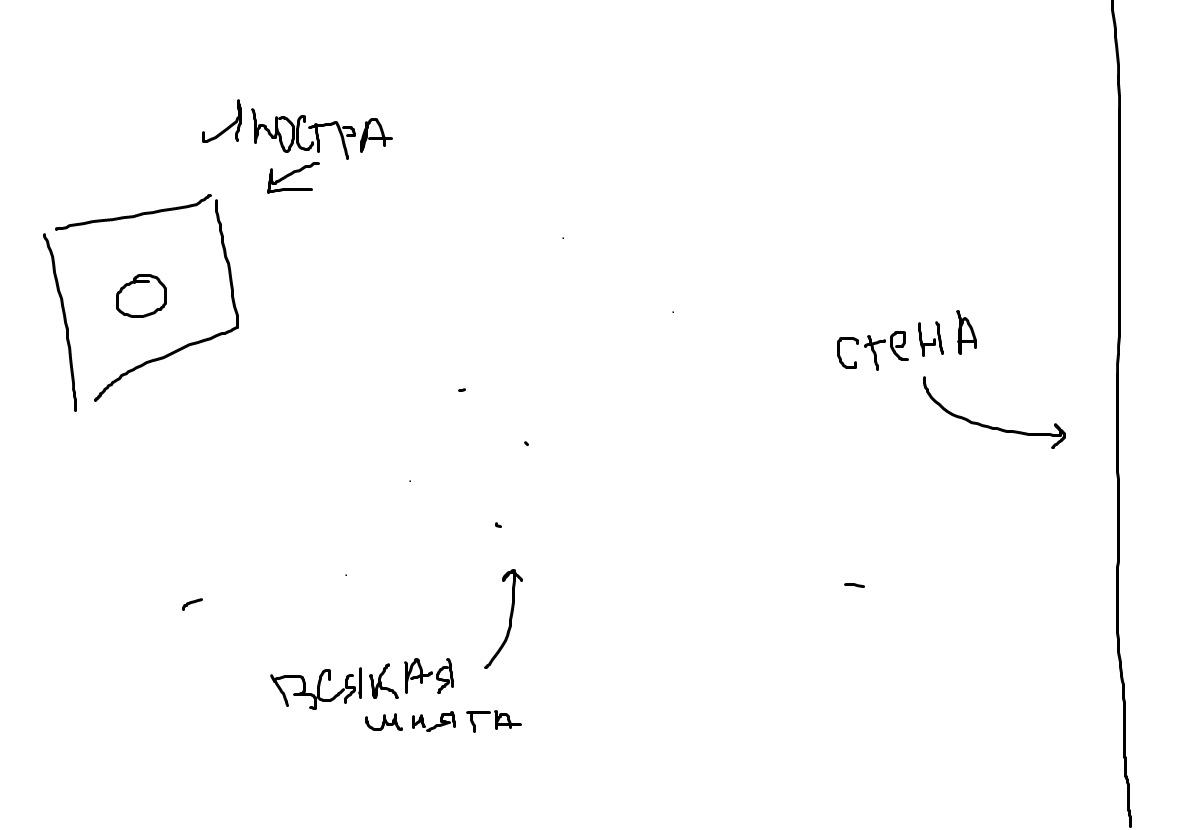 люстра
стена
всякая
шняга